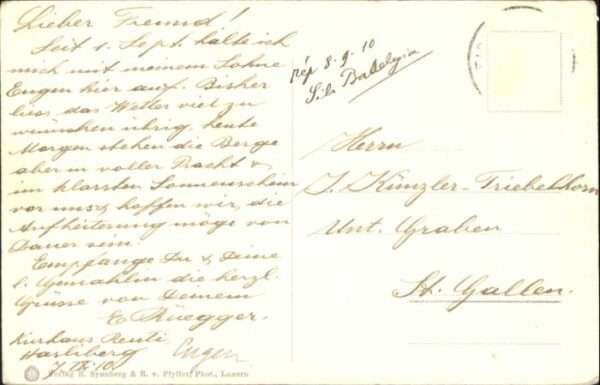 Lieber Freund!
Seit 1. Sept. halte ich
mich mit meinem Sohne
Eugen hier auf. Bisher
liess das Wetter viel zu
wünschen übrig, heute
Morgen stehen die Berge
aber in voller Pracht &
im klarsten Sonnenschein
vor uns & hoffen wir, die
Aufheiterung möge von
Dauer sein.
Empfange Du & Deine
l. Gemahlin die herzl.
Grüsse von Deinem
E. Rüegger.
Kurhaus Reuti
Hasliberg Eugen
7. IX. 10.
Verlag R. Synnberg & R. v. Pfyffer, Phot., Luzern
rép 8-9-10
Herrn
J. Künzler-Triebelhorn
Unt. Graben
St. Gallen.